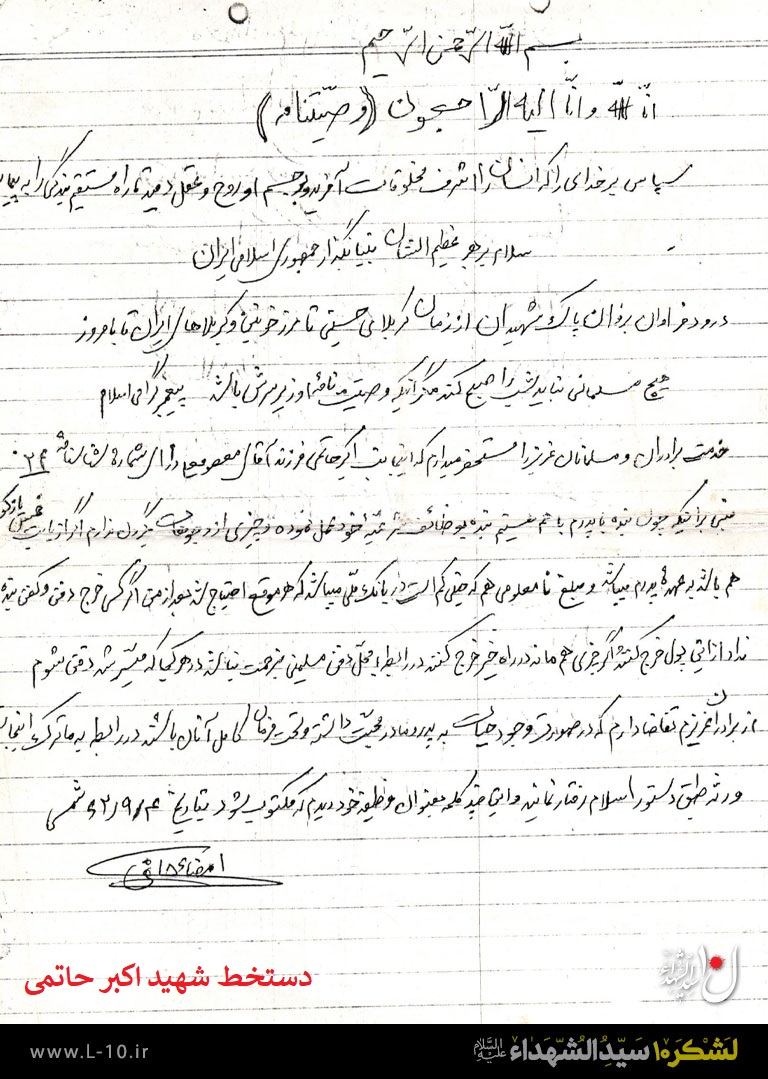 بسم الله الرّحمن الرّحیم
انّا لله وانّا الیه الرّاجعون (وصیّتنامه)
سپاس بر خدای را که انسان را اشرف مخلوقات آفرید و بر جسم او روح و عقل دمید تا راه مستقیم بندگی را به پیما
سلام بر رهبر عظیم الشان بنیانگذار جمهوری اسلامی ایران
درود فراوان بر روان پاک شهیدان از زمان کربلای حسینی تا مرز خونین و کربلاهای ایران تا بامروز
هیچ مسلمانی نباید شب را صبح کند مگر آنکه وصیت نامه او زیر سرش باشد پیغمبر گرامی اسلام
خدمت برادران و مسلمانان عزیز را مستحضر میدارم که اینجانب اکبر حاتمی فرزند آقای معصومعلی دارای شماره شناسنامه ۲۴
مبنی بر اینکه چون بنده با پدرم با هم هستیم بنده بوظائف شرعیّه خود عمل نموده و چیزی از وجوهات بگردن ندارم اگر از بابت خمس یا زکوة
هم باشد به عهده پدرم میباشد و مبلغ نا معلومی هم که خیلی کم است در بانک ملّی میباشد که هر موقع احتیاج شد بعد از من اگر کسی خرج دفن و کفن بنده
نداد از این پول خرج کنند و اگر چیزی هم ماند در راه خیر خرج کنند در رابطه به محلّ دفن مسلمین بزحمت نباشند در هر کجا که میسّر شد دفن شوم
از برادران عزیزم تقاضا دارم که در صورت وجود حیات به پدر و مادر محبّت داشته و تحت فرمان کامل آنان باشند در رابطه به ماترک اینجانب
ورثه طبق دستور اسلام رفتار نمایند و این چند کلمه بعنوان وظیفه خود دیدم که مکتوب شود بتاریخ ۶۳/۹/۴ شمسی
امضاء حاتمی
دستخط شهید اکبر حاتمی
لشکر۱۰ سیّدالشهداء علیه السلام
www.L-10.ir